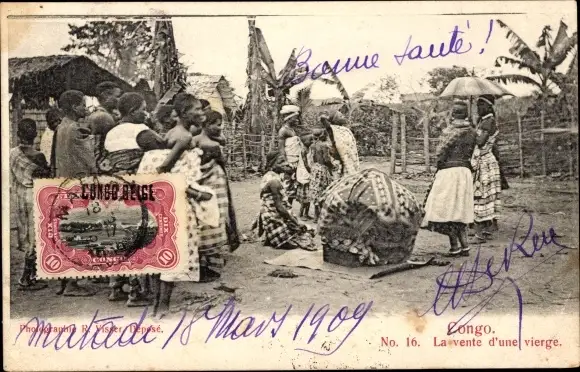 Bonne santé !
CONGO BELGE
DIX
DIX
10 CONGO 10
Photographie R. Visser Déposé.
Congo.
No. 16. La vente d'une vierge.
18 Mars 1909